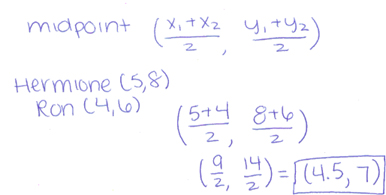 midpoint (x₁+x₂/2, y₁+y₂/2)
Hermione (5,8)
Ron (4,6)
(5+4/2, 8+6/2)
(9/2, 14/2) = (4.5, 7)